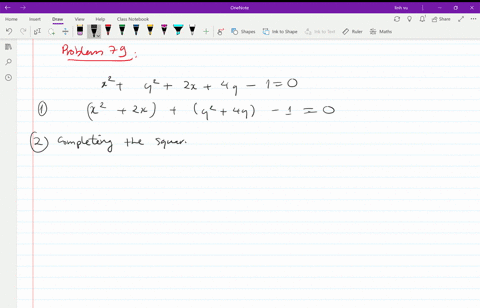 OneNote
linh vu
File Home Insert Draw View Help Class Notebook
Shapes Ink to Shape Ink to Text Ruler Maths
Problem 79:
x² + y² + 2x + 4y - 1 = 0
① (x² + 2x) + (y² + 4y) - 1 = 0
② Completing the squar.